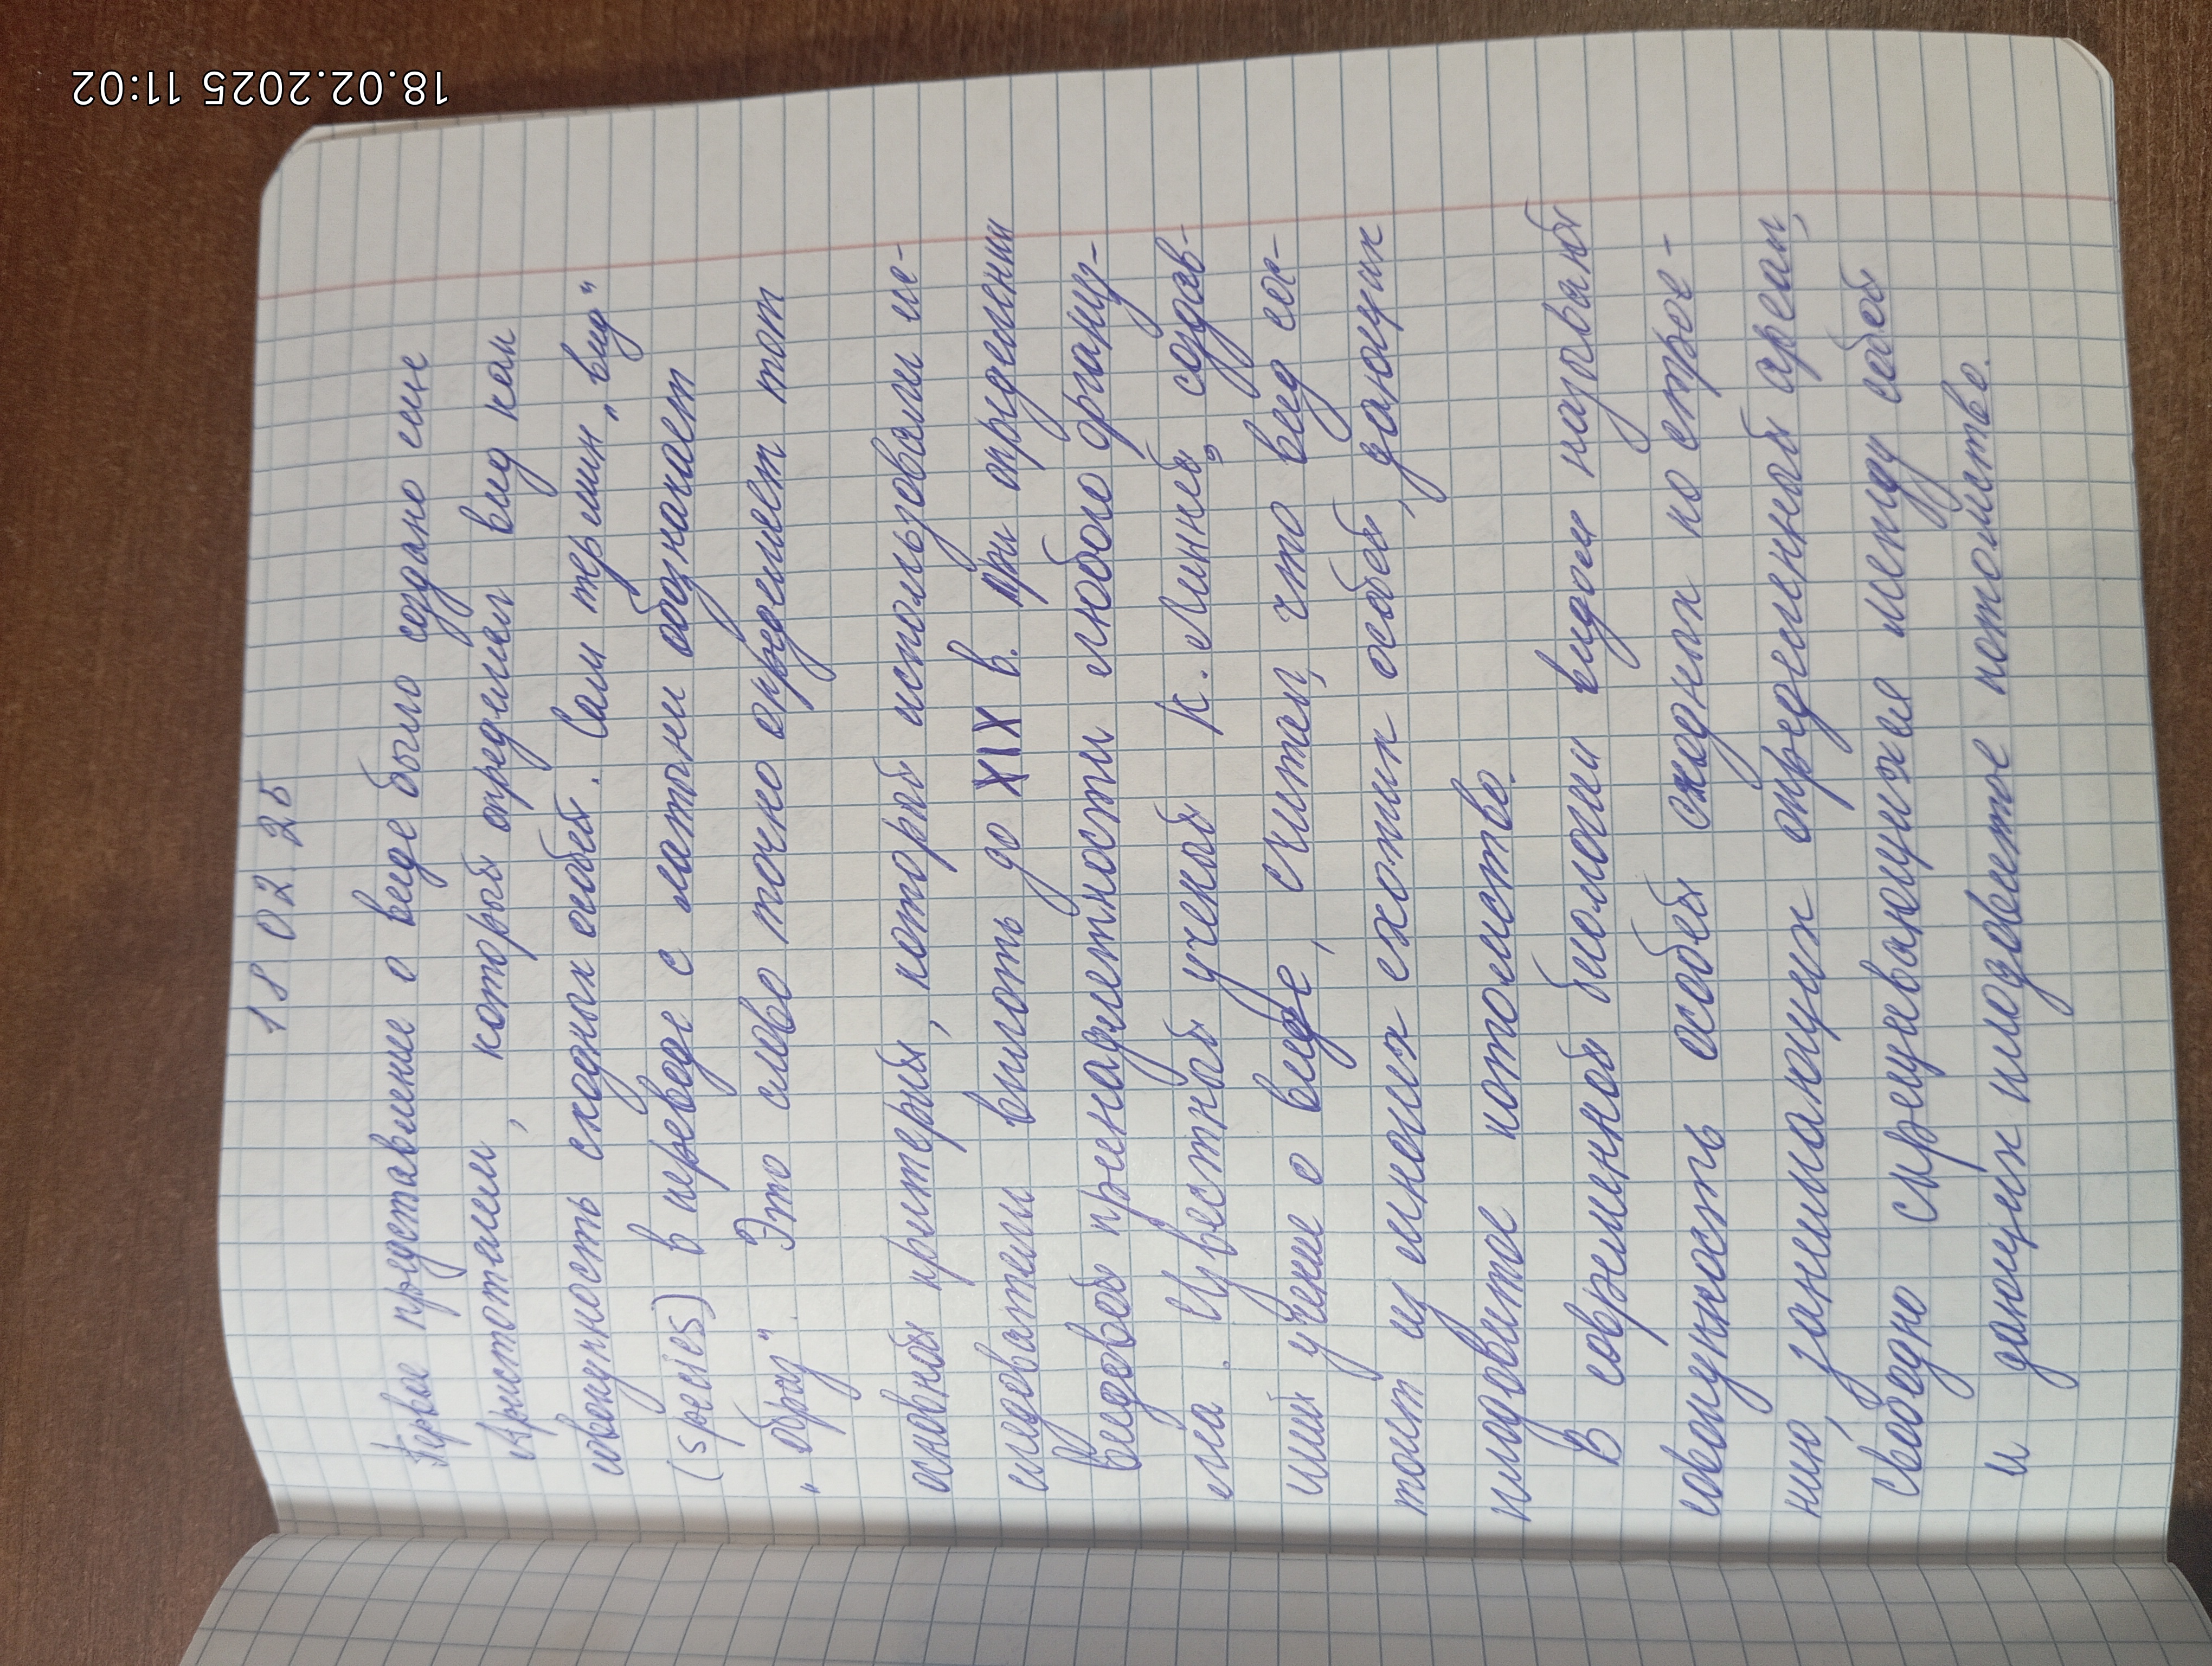 18.02.2025 11:02
18 02 25
Первое представление о виде было создано еще
Аристотелем, который определял вид как
совокупность сходных особей. Сам термин „вид"
(species) в переводе с латыни обозначает
„образ". Это слово точно определяет тот
основной критерий, который использовали ис-
следователи вплоть до XIX в. при определении
видовой принадлежности любого организ-
ма. Известный ученый К. Линней, создав-
ший учение о виде, считал, что вид сос-
тоит из многих схожих особей, дающих
плодовитое потомство.
В современной биологии видом называют
совокупность особей сходных по строе-
нию, занимающих определенный ареал,
свободно скрещивающихся между собой
и дающих плодовитое потомство.